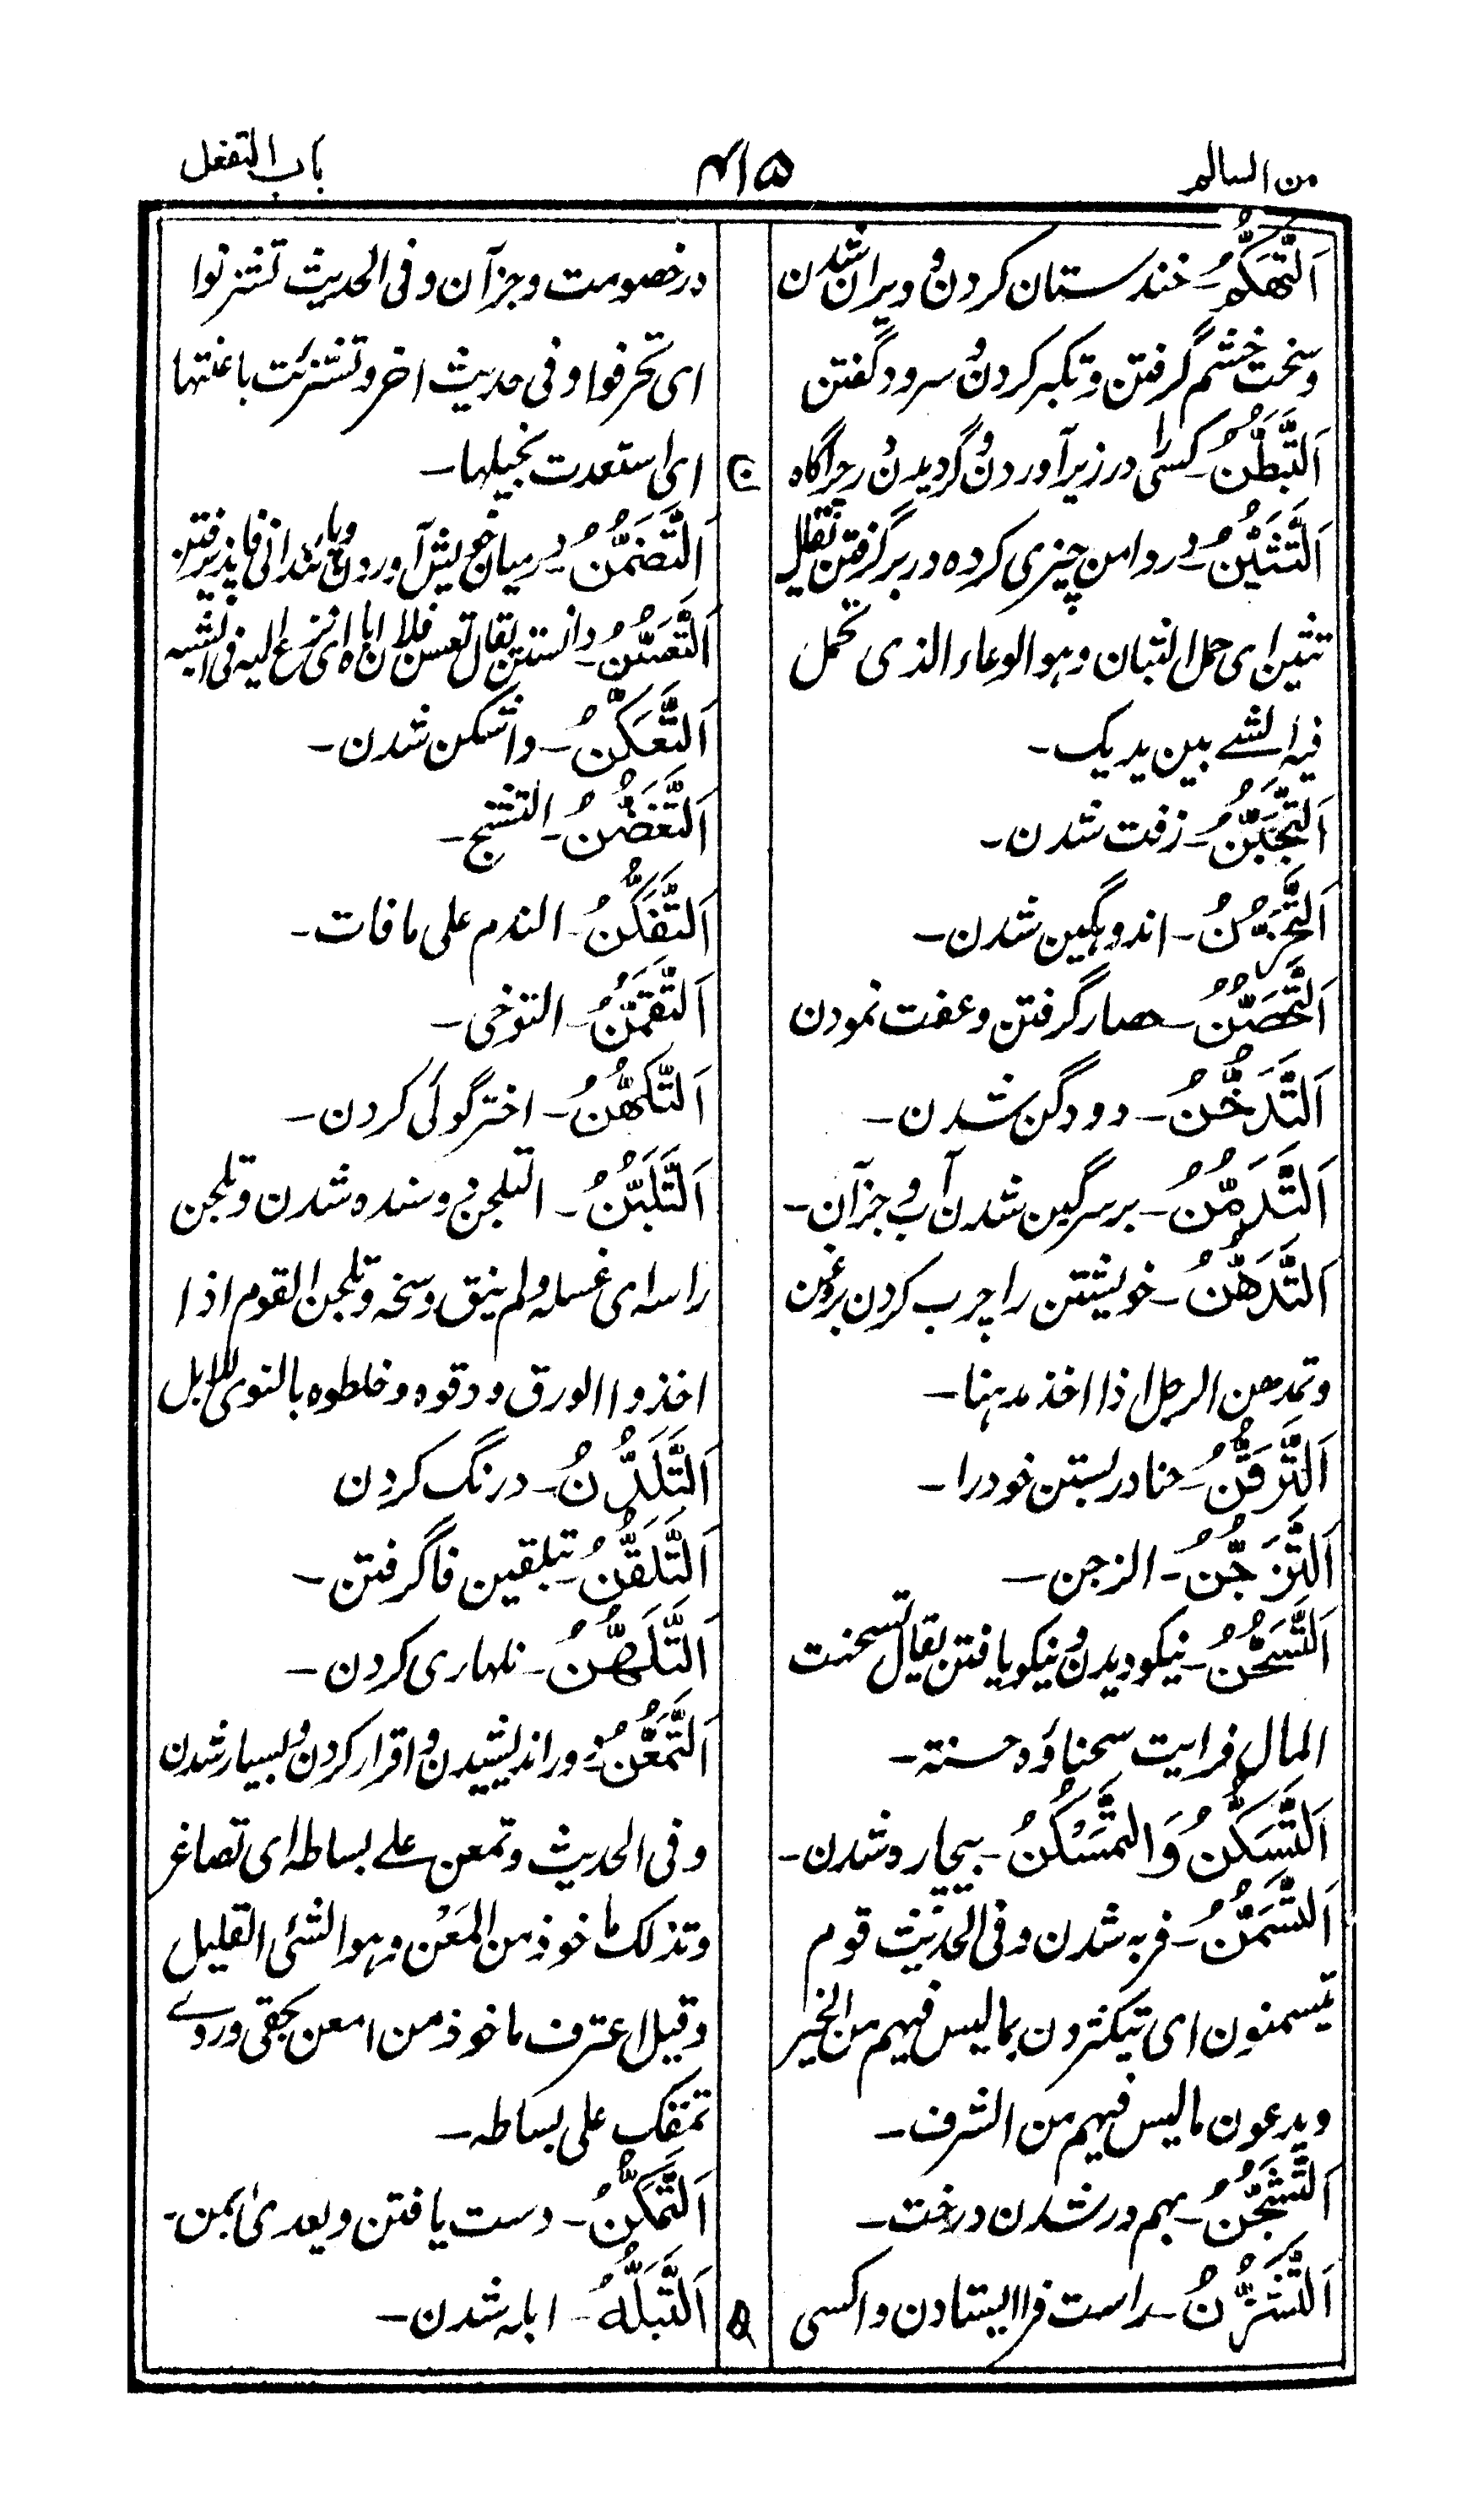 من السالم
۴۱۵
باب التفعل
اَلتَّهَكُّمُ۔ خندستان کردن و ویران شدن
وسخت خشم گرفتن وتکبر کردن سرود گفتن
اَلتَّبَطُّنُ۔ کسی را در زیر آوردن و گردیدن در چراگاه
ن
اَلتَّثَبُّنُ۔ در دامن چیزی کرده در بر گرفتن یقال
تثبن ای حمل الثبان وہو الوعاء الذی تحمل
فیہ الشے بین یدیک۔
اَلتَّجَبُّنُ۔ زفت شدن۔
اَلتَّحَزُّنُ۔ اندوہگین شدن۔
اَلتَّحَصُّنُ۔ حصار گرفتن وعفت نمودن
اَلتَّدَخُّنُ۔ دودگن شدن۔
اَلتَّدَمُّنُ۔ بر سرگین شدن آب و جز آن۔
اَلتَّدَهُّنُ۔ خویشتن را چرب کردن بروغن
وتمدهن الرجل اذا اخذ مدہنا۔
اَلتَّرَقُّنُ۔ حنا در بستن خود را۔
اَلتَّزَجُّنُ۔ الزجن۔
اَلتَّسَحُّنُ۔ نیکو دیدن و نیکو یافتن یقال تسحنت
المال فرایت سحناؤه حسنة۔
اَلتَّسَكُّنُ وَالتَّمَسْكُنُ۔ بیچاره شدن۔
اَلتَّسَمُّنُ۔ فربہ شدن وفی الحدیث قوم
یتسمنون ای یتکثرون بما لیس فیہم من الخیر
ویدعون ما لیس فیہم من الشرف۔
اَلتَّشَجُّنُ۔ بہم در شدن درخت۔
اَلتَّشَزُّنُ۔ راست فرا ایستادن واکسی
در خصومت وجز آن وفی الحدیث تشزنوا
ای تحرفوا وفی حدیث اخر وتشزنت باعنتہا
ای استعدت بخیلہا۔
اَلتَّضَمُّنُ۔ در میان خویش آوردن و پایندانی فا پذیرفتن
اَلتَّعَسُّنُ۔ دانستن یقال تعسن فلان اباه ای نزع الیہ فی الشبہ
اَلتَّعَكُّنُ۔ واشکن شدن۔
اَلتَّغَضُّنُ۔ التشنج۔
اَلتَّفَكُّنُ۔ الندم علی ما فات۔
اَلتَّقَمُّنُ۔ التوخی۔
اَلتَّكَهُّنُ۔ اخترگوئی کردن۔
اَلتَّلَبُّنُ۔ التلجن دوسنده شدن وتلجن
راسہ ای غسلہ ولم ینق وسخہ وتلجن القوم اذا
اخذوا الورق ودقوه وخلطوه بالنوی للابل
اَلتَّلَدُّنُ۔ درنگ کردن
اَلتَّلَقُّنُ۔ بتلقین فاگرفتن۔
اَلتَّلَهُّنُ۔ نلہاری کردن۔
اَلتَّمَعُّنُ۔ دور اندیشیدن و اقرار کردن و بسیار شدن
وفی الحدیث وتمعن علے بساطہ ای تصاغر
وتذلل ماخوذ من المَعْن وہو الشئ القلیل
وقیل اعترف ماخوذ من امعن بحقی وروے
تمعک علی بساطہ۔
اَلتَّمَكُّنُ۔ دست یافتن ویعدیٰ بمن۔
ه
اَلتَّبَلُّهُ۔ ابلہ شدن۔